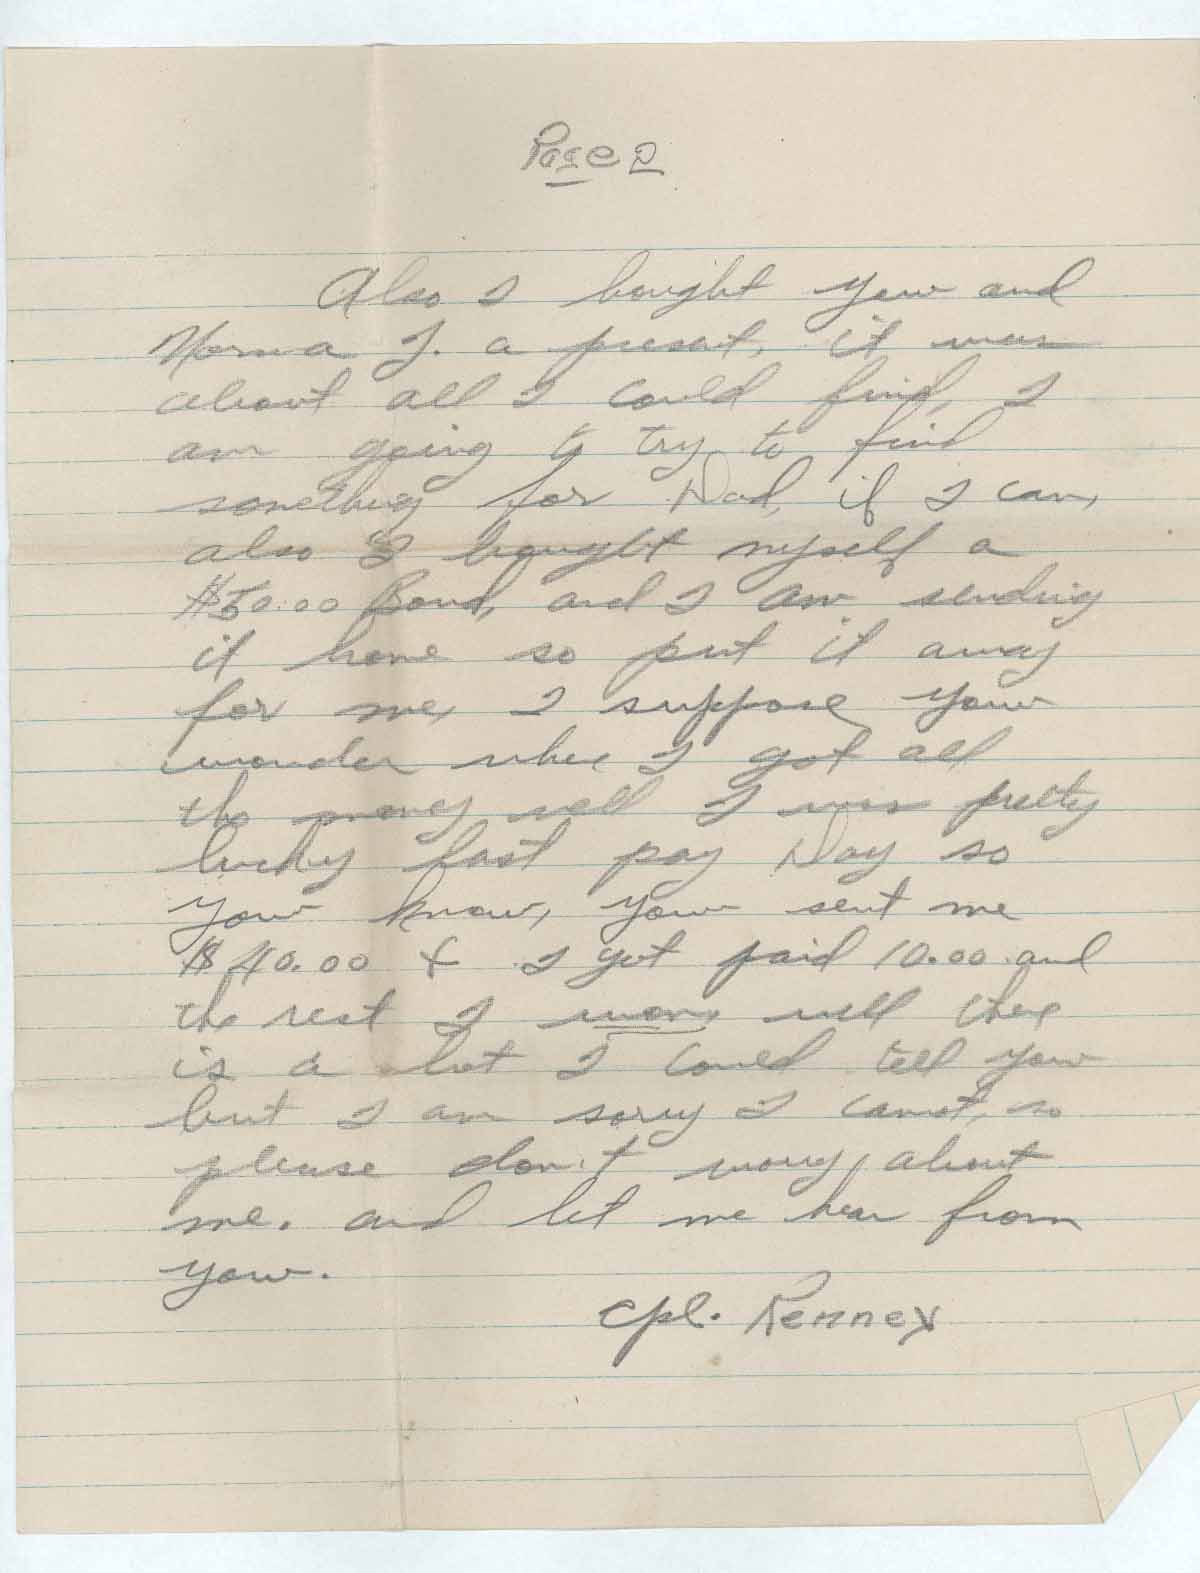 Page 2
Also I bought you and
Norma J. a present, it was
about all I could find, I
am going to try to find
something for Dad, if I can,
also I bought myself a
$50.00 Bond, and I am sending
it home so put it away
for me, I suppose you
wonder where I got all
the money well I was pretty
lucky last pay Day so
you know, you sent me
$40.00 & I got paid 10.00 and
the rest I won, well there
is a lot I could tell you
but I am sorry I cannot, so
please don't worry about
me. and let me hear from
you.
Cpl. Renney